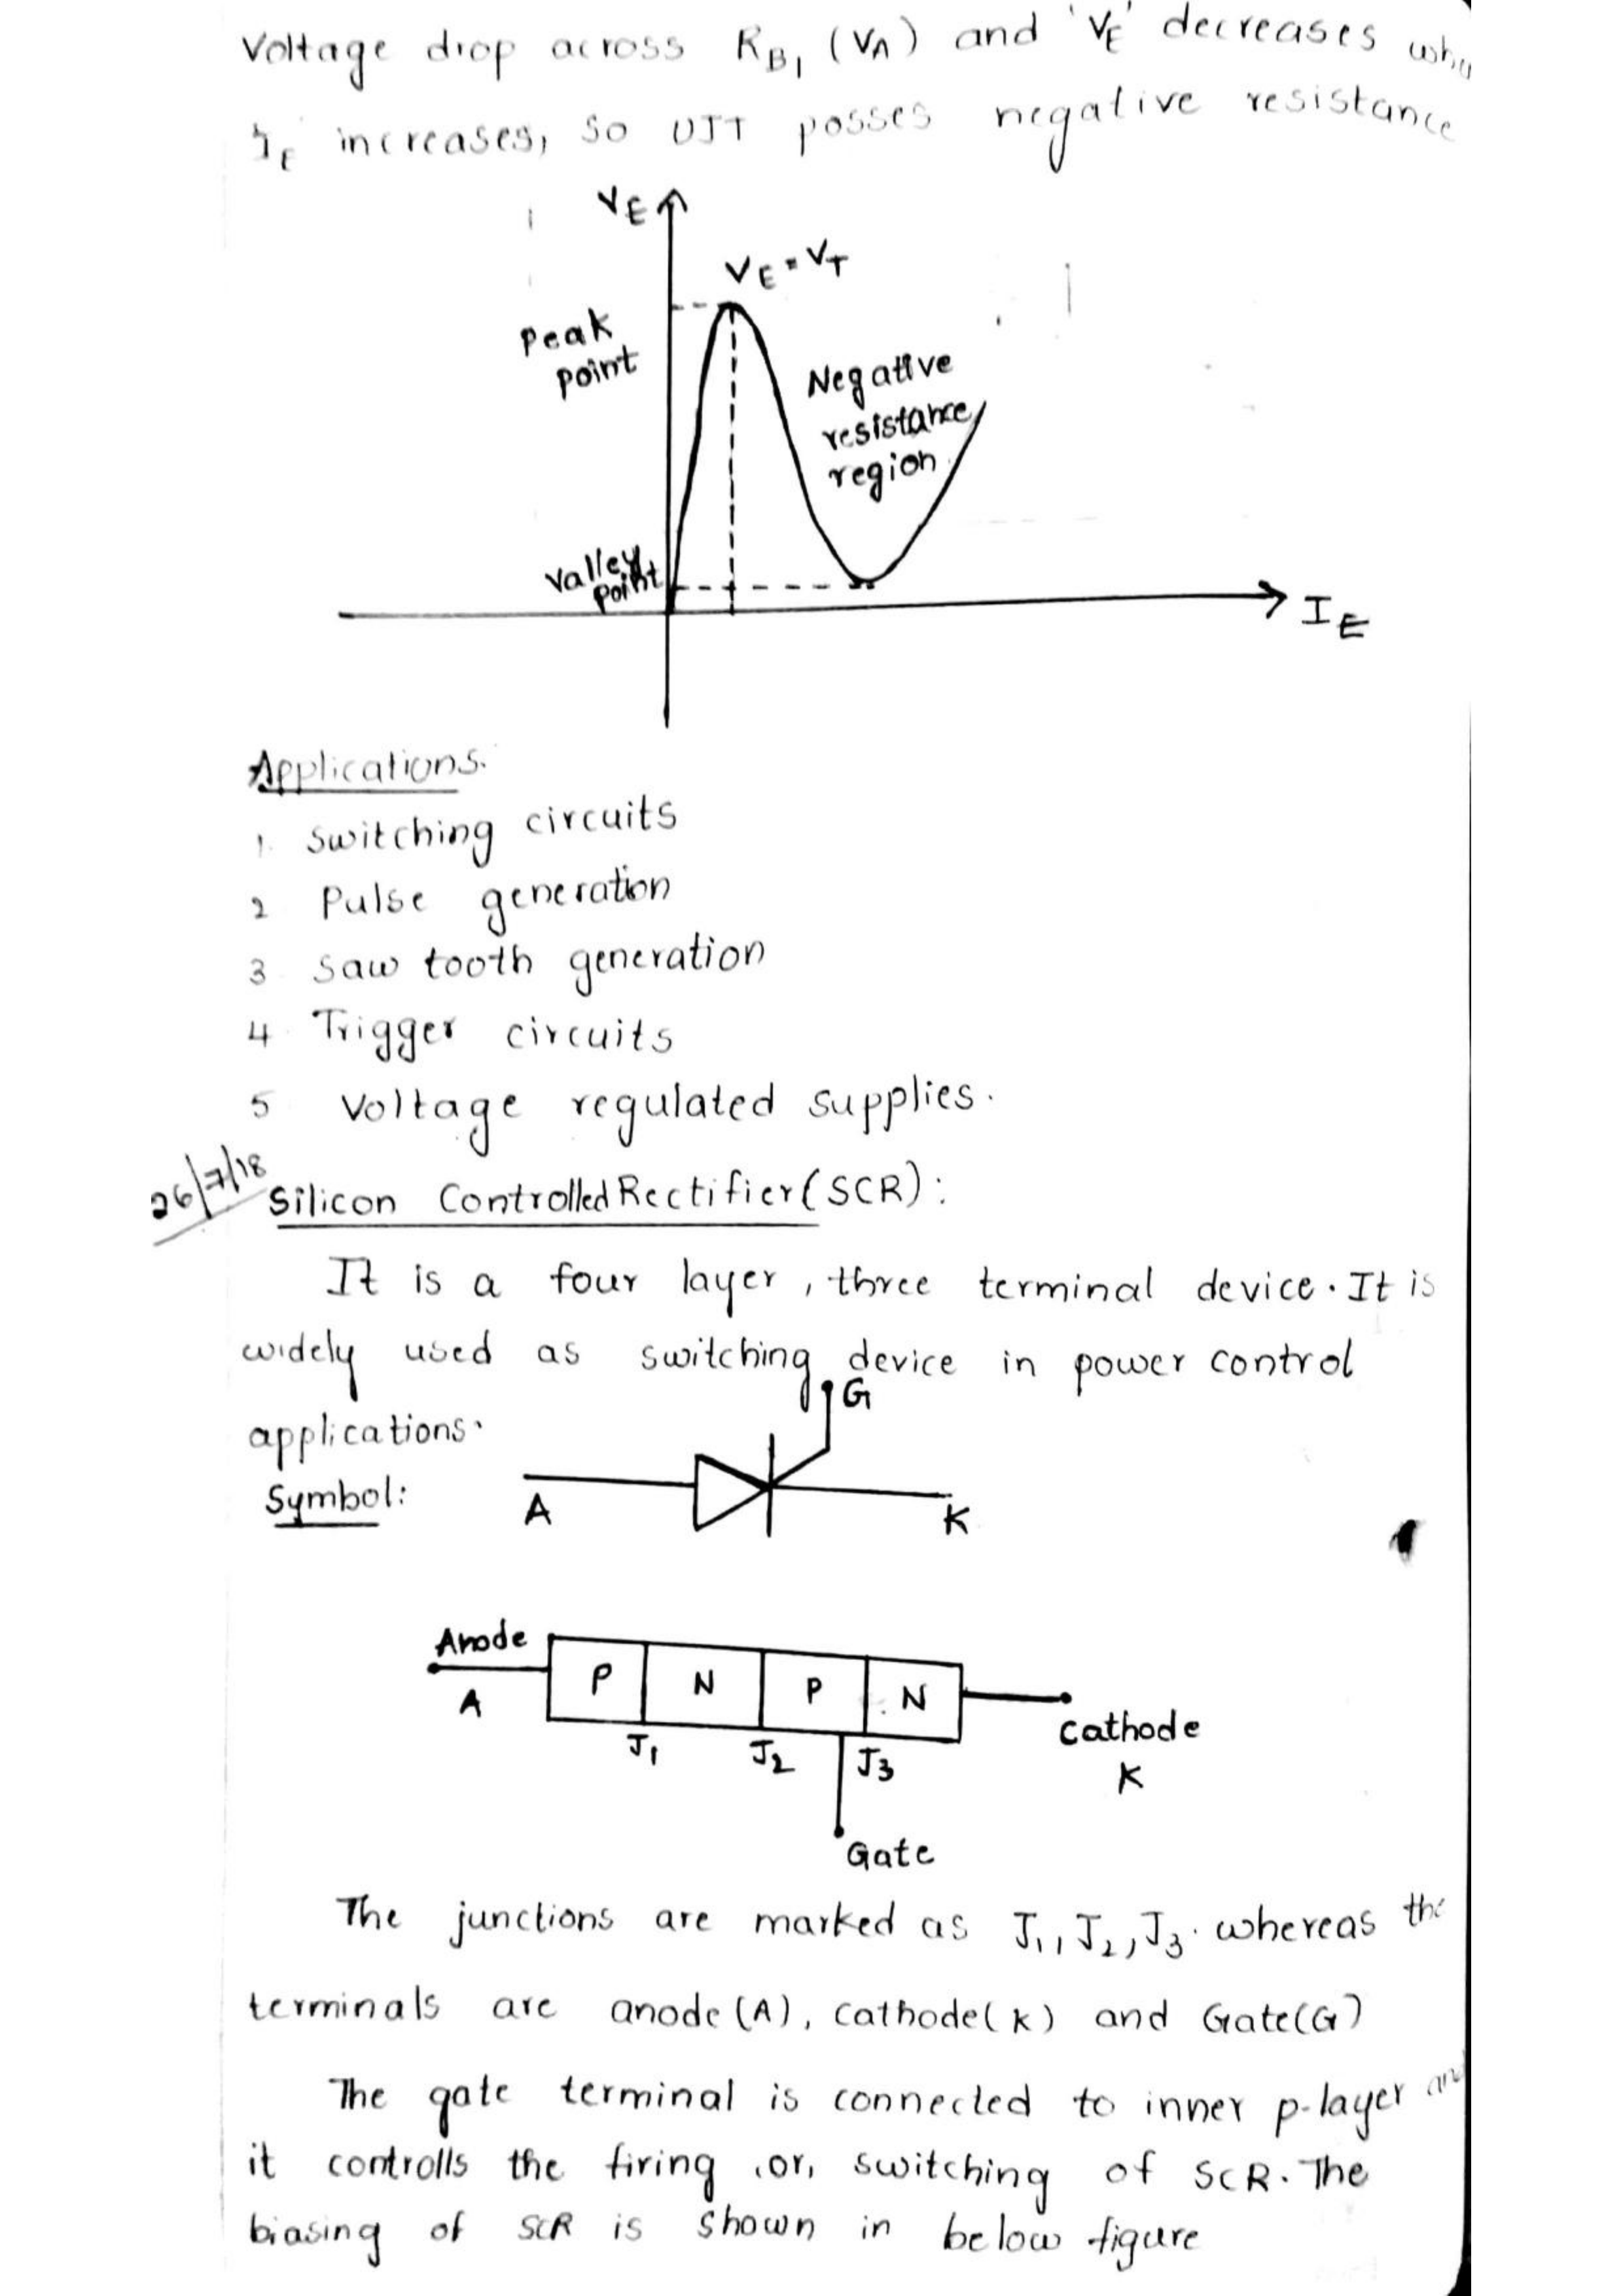 Voltage drop across RB1 (VA) and 'VE' decreases
IE increases, so UJT posses negative resistance
VE
VE = VT
Peak
point
Negative
resistance
region
Valley
point
IE
Applications.
1. Switching circuits
2 Pulse generation
3 Saw tooth generation
4 Trigger circuits
5 Voltage regulated supplies.
26/7/18
Silicon Controlled Rectifier (SCR) :
It is a four layer, three terminal device. It is
widely used as switching device in power control
applications.
G
Symbol:
A
K
Anode
A
P N P N
J1 J2 J3
Cathode
K
Gate
The junctions are marked as J1, J2, J3. whereas the
terminals are anode (A), cathode (K) and Gate (G)
The gate terminal is connected to inner p-layer and
it controlls the firing (or) switching of SCR. The
biasing of SCR is shown in below figure